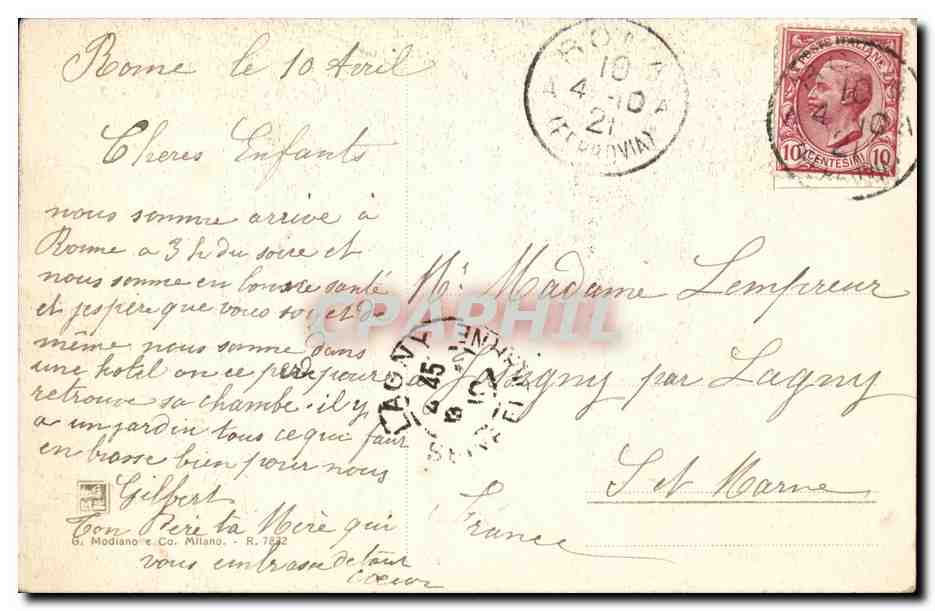 Rome le 10 Avril
Cheres Enfants
nous somme arrive à
Rome a 3 h du soire et
nous somme en bonne santé
et jesper que vous soyet de
même nous somme dans
une hotel on ce pert pour
retrouve sa chambe il y
a un jardin tous ce qui faut
enbrasse bien pour nous
Gilbert
Ton Père ta Mère qui
vous embrasse de tout
coeur
G. Modiano e Co. Milano. - R. 7832
ROMA
10
4-10
21
(FERROVIA)
POSTE ITALIANE
10 CENTESIMI 10
Mr Madame Lempreur
par Lagny
S et Marne
France
LAGNY
45
SEINE ET MARNE
CPAPHIL